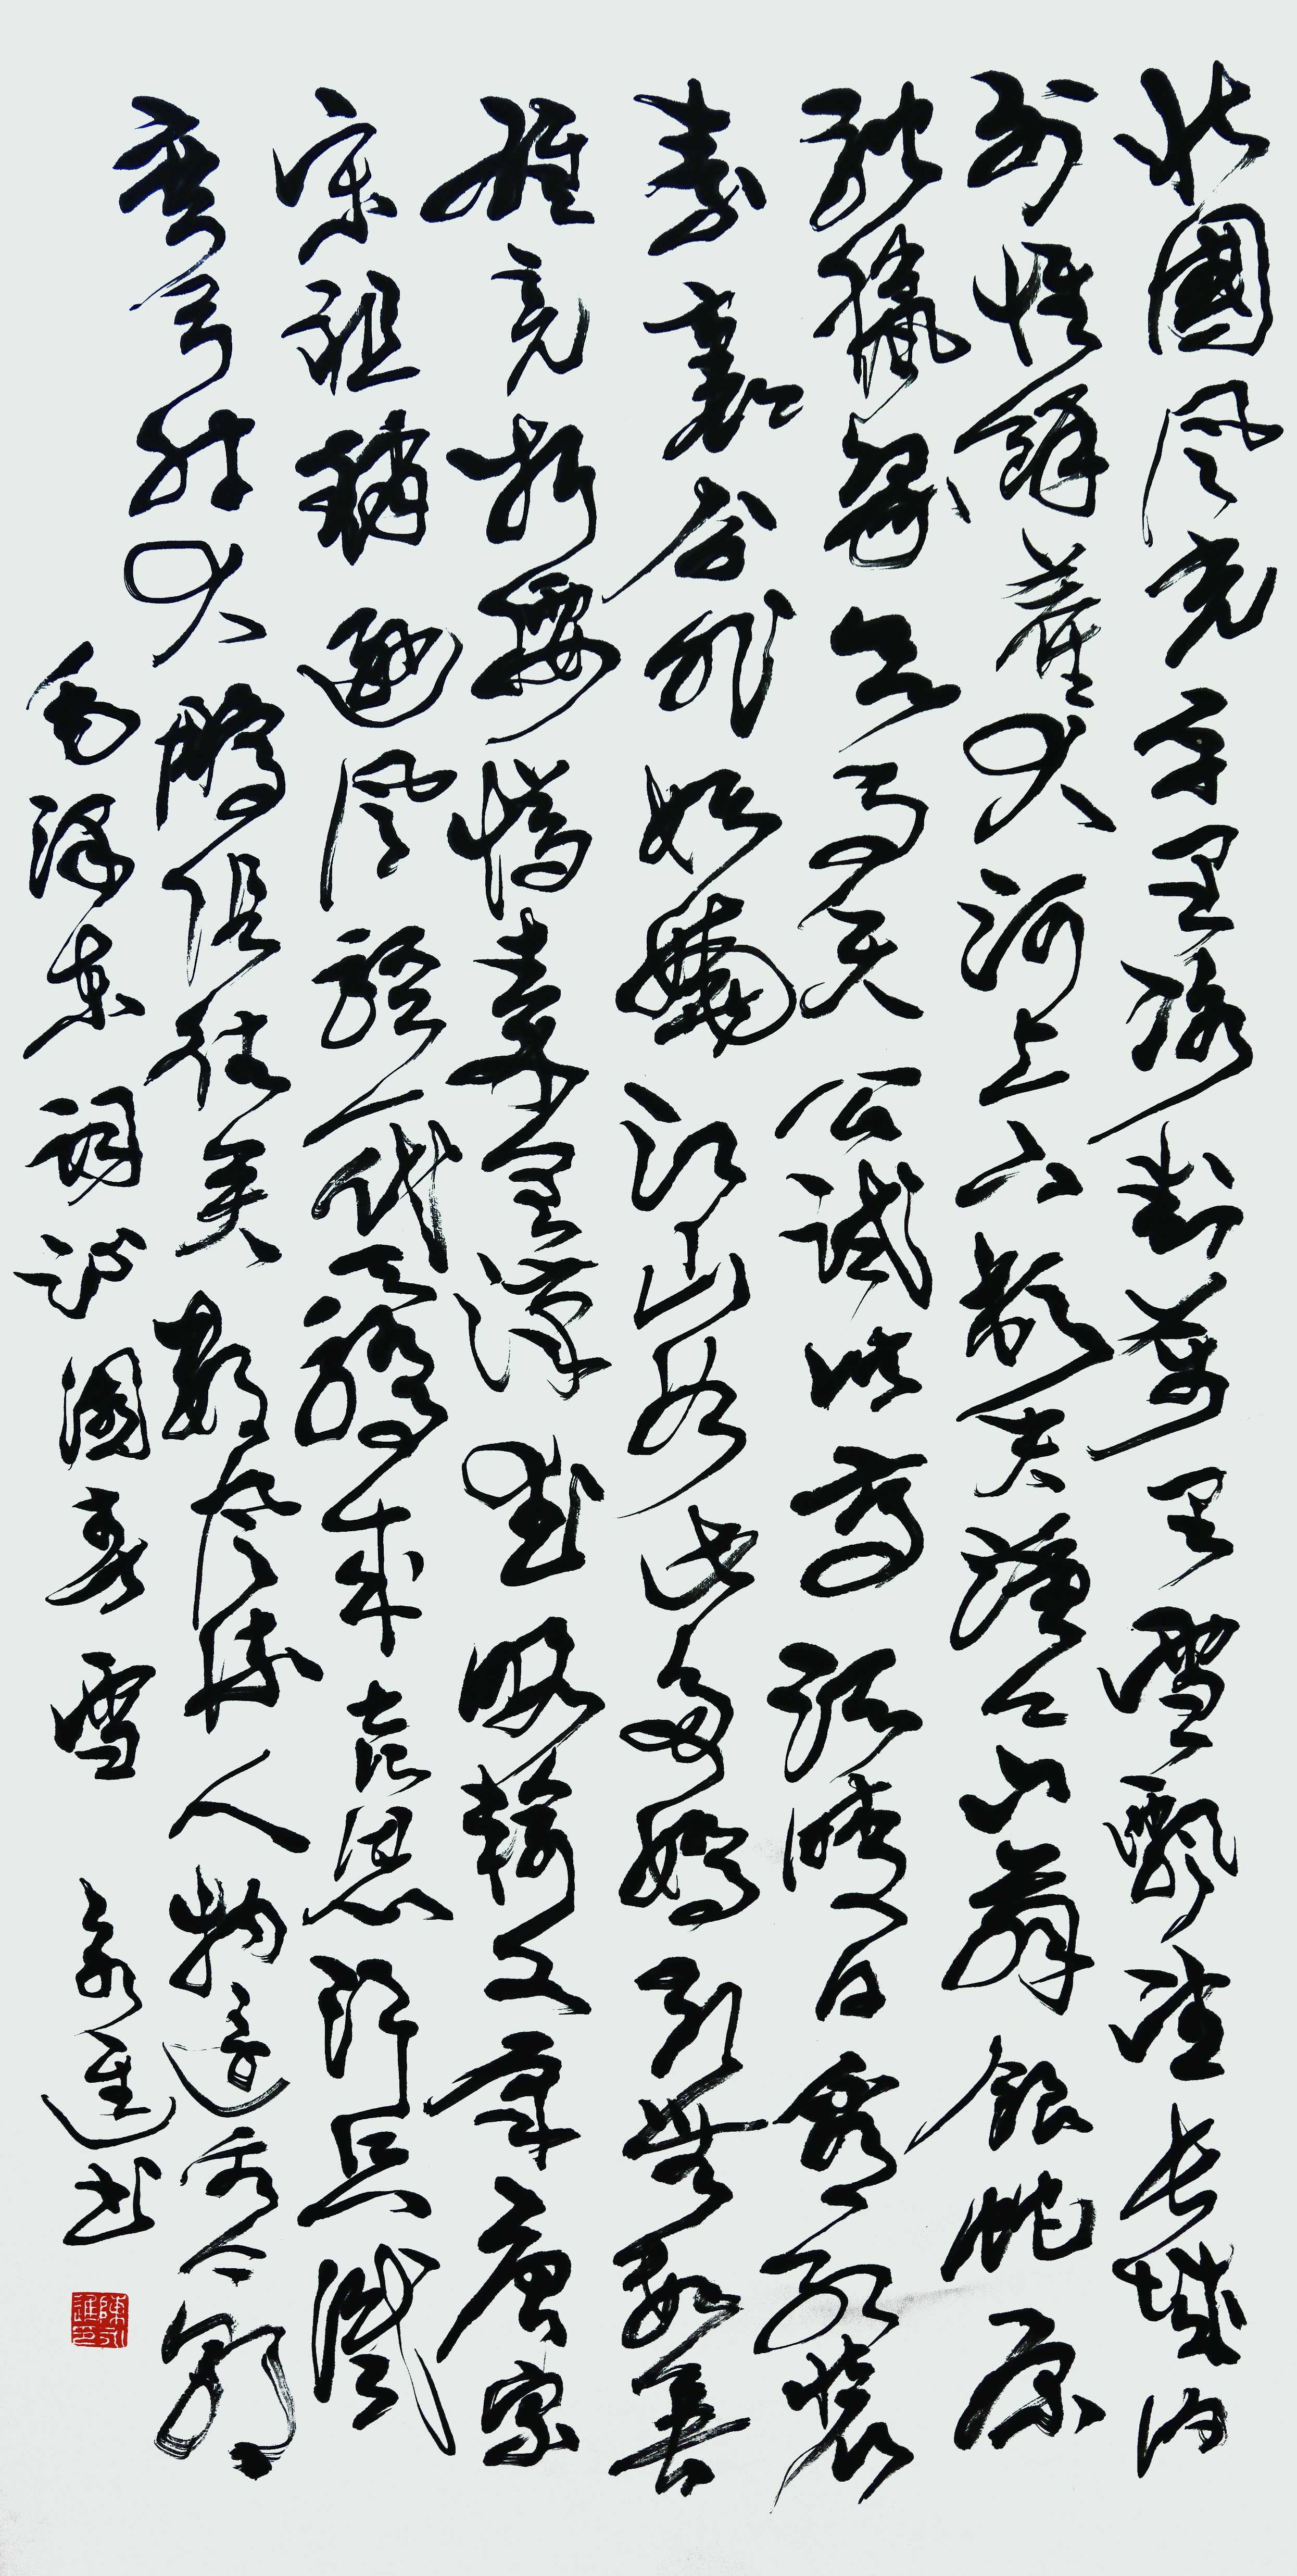 北國風光千里冰封萬里雪飄望長城内
外惟餘莽々大河上下頓失滔々山舞銀蛇原
馳蠟象欲與天公試比高須晴日看紅裝
素裹分外妖嬈江山如此多嬌引無數英
雄竞折腰惜秦皇漢武略輸文采唐宗
宋祖稍遜風騷一代天驕成吉思汗只識
彎弓射大鵰俱往矣數風流人物還看今朝
毛澤東詞沁園春雪 永進书
陳永進印